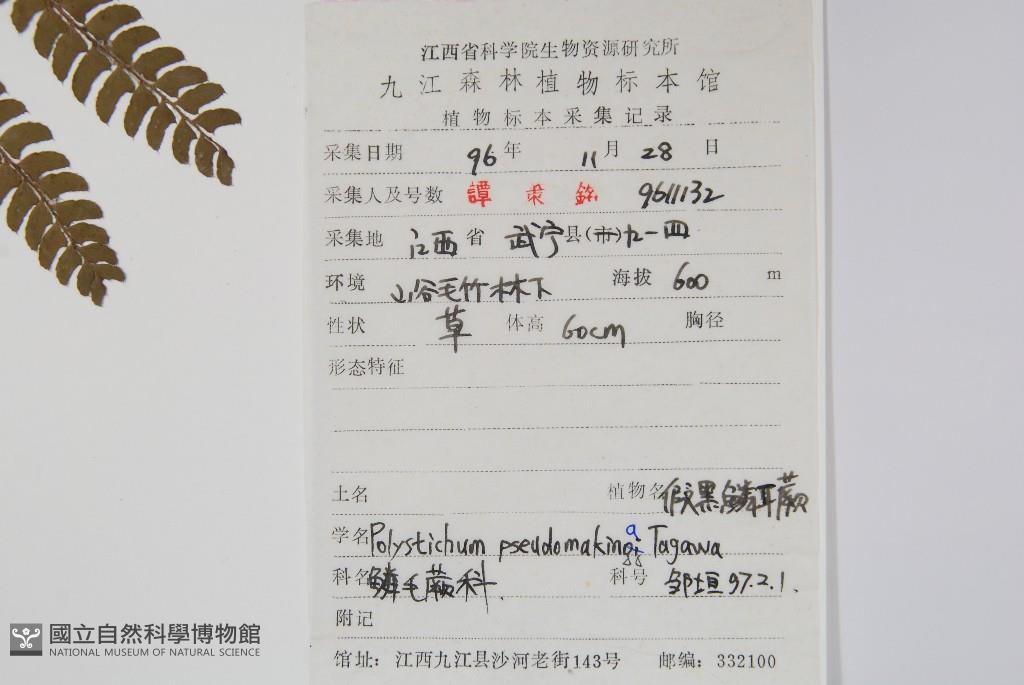 江西省科学院生物资源研究所
九江森林植物标本馆
植物标本采集记录
采集日期 96年 11月 28日
采集人及号数 譚 9611132
采集地 江西省 武宁县(市)九一四
环境 山谷毛竹林下 海拔 600 m
性状 草 体高 60cm 胸径
形态特征
土名 植物名 假黑鳞耳蕨
学名 Polystichum pseudomakinoi Tagawa
科名 鳞毛蕨科. 科号 邹垣 97.2.1.
附记
馆址：江西九江县沙河老街143号 邮编：332100
國立自然科學博物館
NATIONAL MUSEUM OF NATURAL SCIENCE